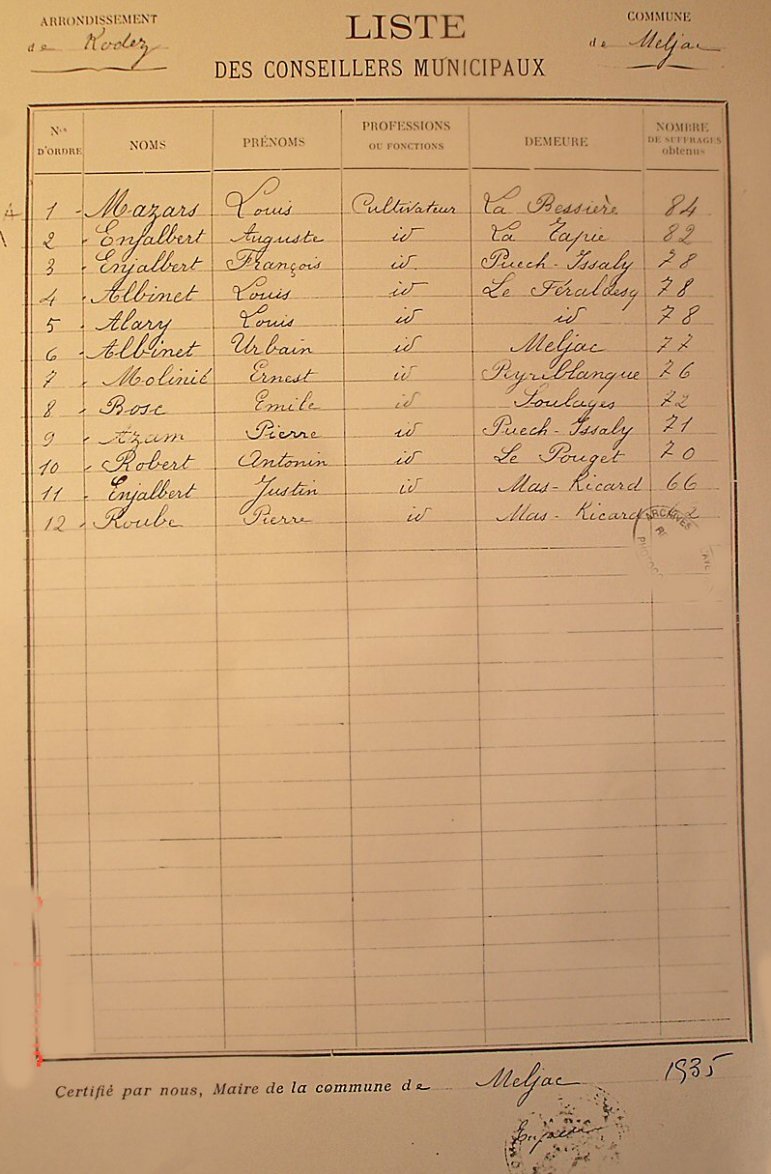 ARRONDISSEMENT
de Rodez
LISTE
DES CONSEILLERS MUNICIPAUX
COMMUNE
de Meljac
Nos D'ORDRE NOMS PRÉNOMS PROFESSIONS OU FONCTIONS DEMEURE NOMBRE DE SUFFRAGES obtenus
1 - Mazars Louis Cultivateur La Bessière 84
2 - Enjalbert Auguste id La Tapie 82
3 - Enjalbert François id. Puech-Issaly 78
4 - Albinet Louis id Le Féraldesq 78
5 - Alary Louis id id 78
6 - Albinet Urbain id Meljac 77
7 - Molinié Ernest id Peyreblanque 76
8 - Bosc Emile id Soulages 72
9 - Azam Pierre id Puech-Issaly 71
10 - Robert Antonin id Le Pouget 70
11 - Enjalbert Justin id Mas-Ricard 66
12 - Roube Pierre id Mas-Ricard
ARCHIVES
Certifié par nous, Maire de la commune de Meljac 1935